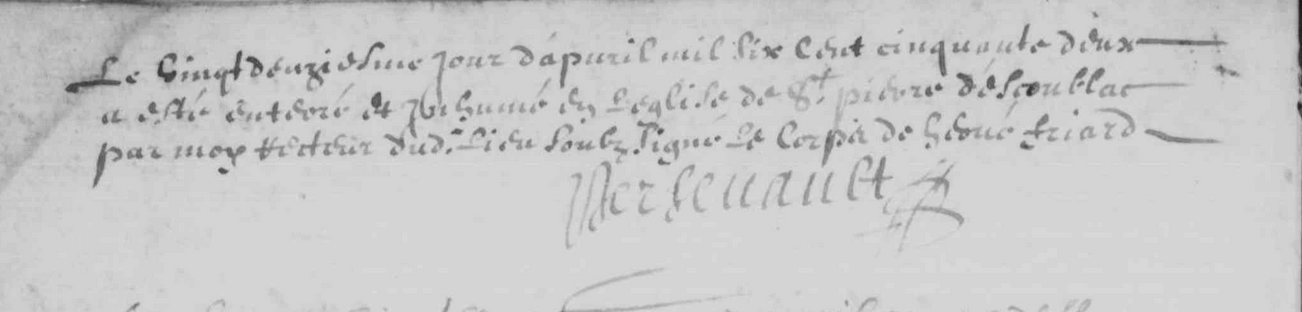 Le vingtdeuziesme jour dapuril mil six cent cinquante deux
a esté enterré et inhumé en leglise de St pierre descoublac
par moy Recteur dud. lieu soubz signé le corps de hervé friard